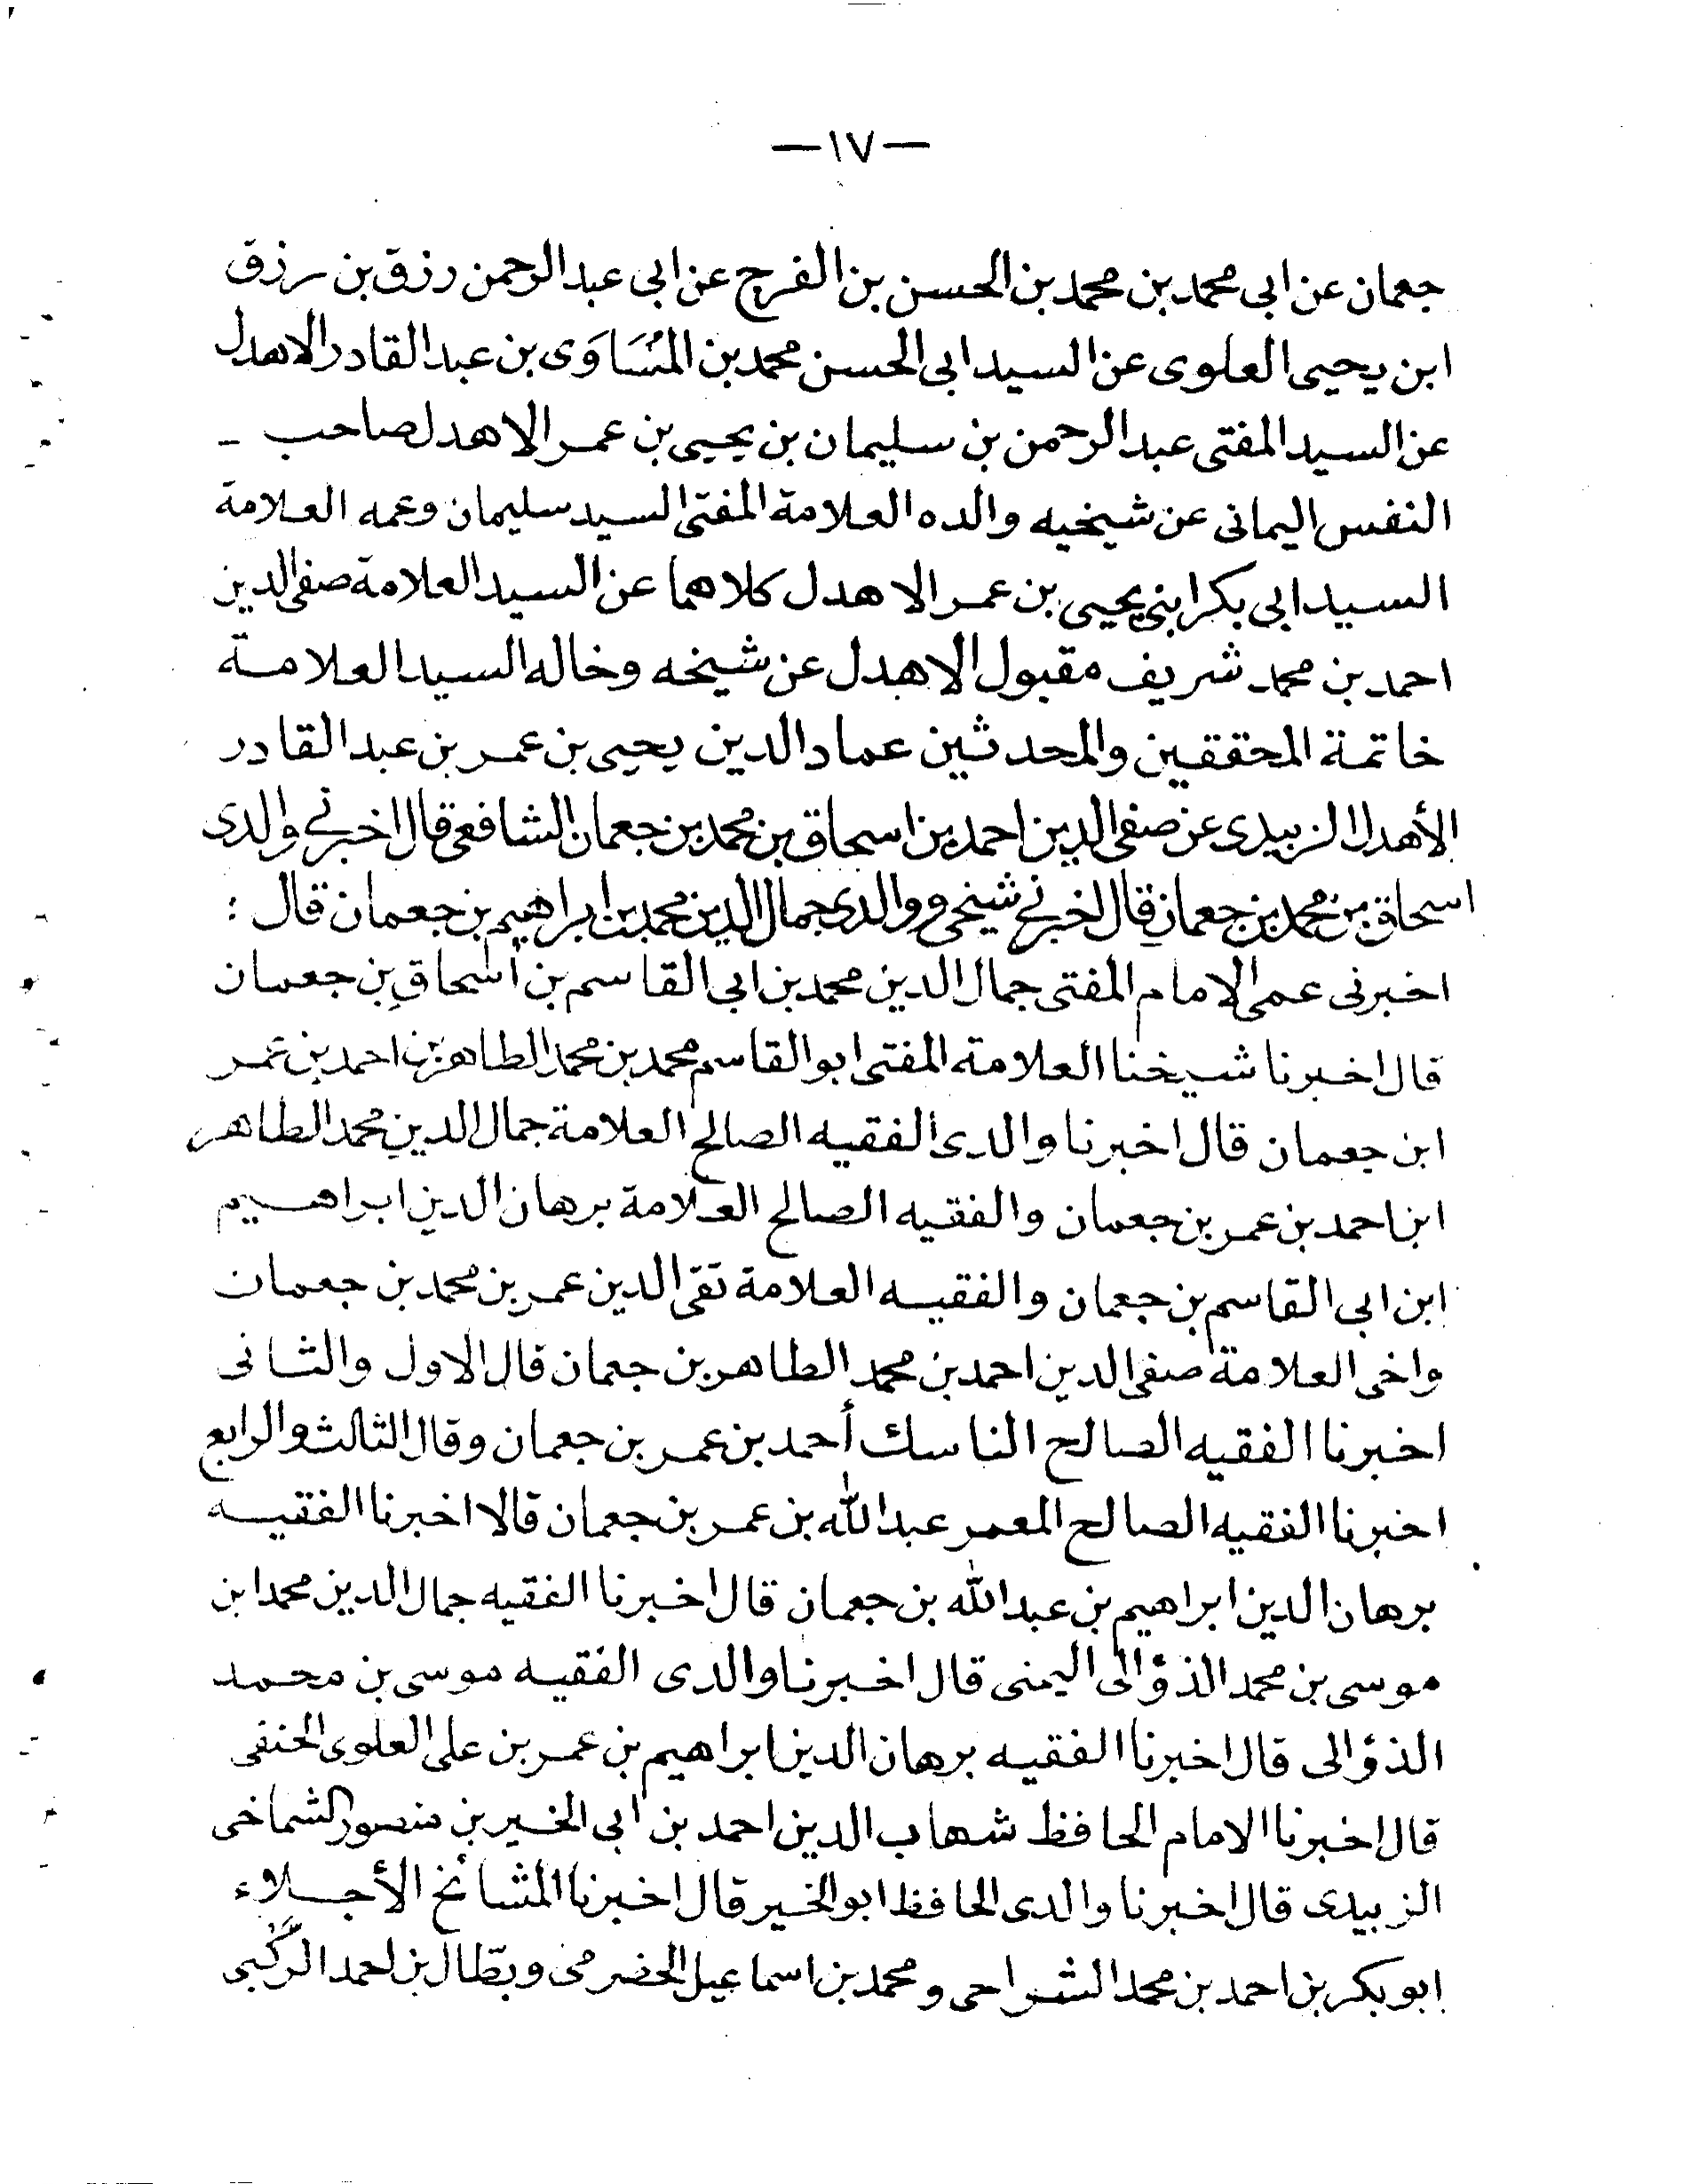 —١٧—
جعمان عن ابى محمد بن محمد بن الحسن بن الفرج عن ابى عبد الرحمن رزق بن رزق
ابن يحيى العلوى عن السيد ابى الحسن محمد بن المُسَاوَى بن عبد القادر الاهدل
عن السيد المفتى عبد الرحمن بن سليمان بن يحيى بن عمر الاهدل صاحب –
النفس اليمانى عن شيخيه والده العلامة المفتى السيد سليمان وعمه العلامة
السيد ابى بكر ابنى يحيى بن عمر الاهدل كلاهما عن السيد العلامة صفى الدين
احمد بن محمد شريف مقبول الاهدل عن شيخه وخاله السيد العلامة
خاتمة المحققين والمحدثين عماد الدين يحيى بن عمر بن عبد القادر
الأهدل الزبيدى عن صفى الدين احمد بن اسحاق بن محمد بن جعمان الشافعى قال اخبرنى والدى
اسحاق بن محمد بن جعمان قال اخبرنى شيخى ووالدى جمال الدين محمد بن ابراهيم بن جعمان قال :
اخبرنى عمى الامام المفتى جمال الدين محمد بن ابى القاسم بن اسحاق بن جعمان
قال اخبرنا شيخنا العلامة المفتى ابو القاسم محمد بن محمد الطاهر بن احمد بن عمر
ابن جعمان قال اخبرنا والدى الفقيه الصالح العلامة جمال الدين محمد الطاهر
ابن احمد بن عمر بن جعمان والفقيه الصالح العلامة برهان الدين ابراهيم
ابن ابى القاسم بن جعمان والفقيه العلامة تقى الدين عمر بن محمد بن جعمان
واخى العلامة صفى الدين احمد بن محمد الطاهر بن جعمان قال الاول والثانى
اخبرنا الفقيه الصالح الناسك أحمد بن عمر بن جعمان وقال الثالث والرابع
اخبرنا الفقيه الصالح المعمر عبد الله بن عمر بن جعمان قالا اخبرنا الفقيه
برهان الدين ابراهيم بن عبد الله بن جعمان قال اخبرنا الفقيه جمال الدين محمد ابن
موسى بن محمد الذؤالى اليمنى قال اخبرنا والدى الفقيه موسى بن محمد
الذؤالى قال اخبرنا الفقيه برهان الدين ابراهيم بن عمر بن على العلوى الحنفى
قال اخبرنا الامام الحافظ شهاب الدين احمد بن ابى الخير بن منصور الشماخى
الزبيدى قال اخبرنا والدى الحافظ ابو الخير قال اخبرنا المشائخ الأجلاء
ابو بكر بن احمد بن محمد الشراحى ومحمد بن اسماعيل الحضرمى وبطّال بن احمد الركبى